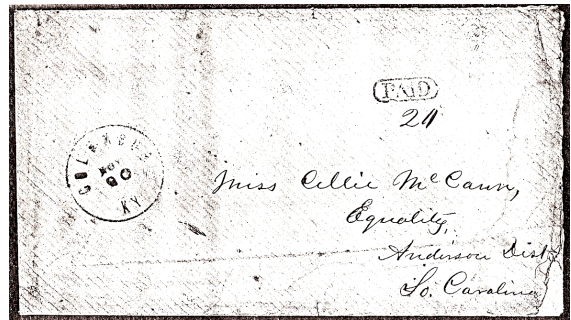 COLUMBUS
NOV
KY
PAID
Miss Cellie McCann,
Equality,
Anderson Dist
So. Carolina